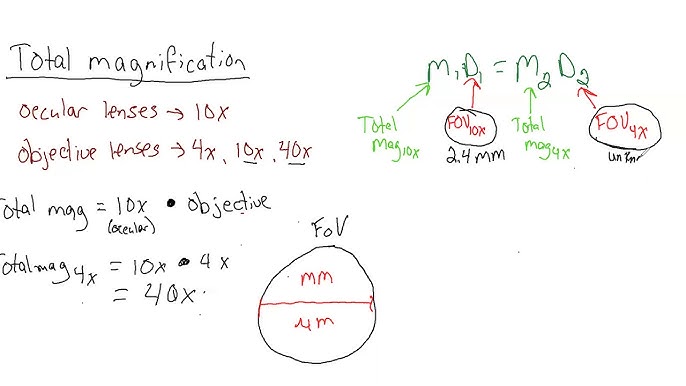 Total magnification
ocular lenses → 10x
Objective lenses → 4x, 10x, 40x
Total mag = 10x • Objective
(ocular)
Total mag 4x = 10x • 4x
= 40x
FoV
mm
µm
M₁D₁ = M₂D₂
Total mag 10x
FOV 10x
2.4 mm
Total mag 4x
FOV 4x